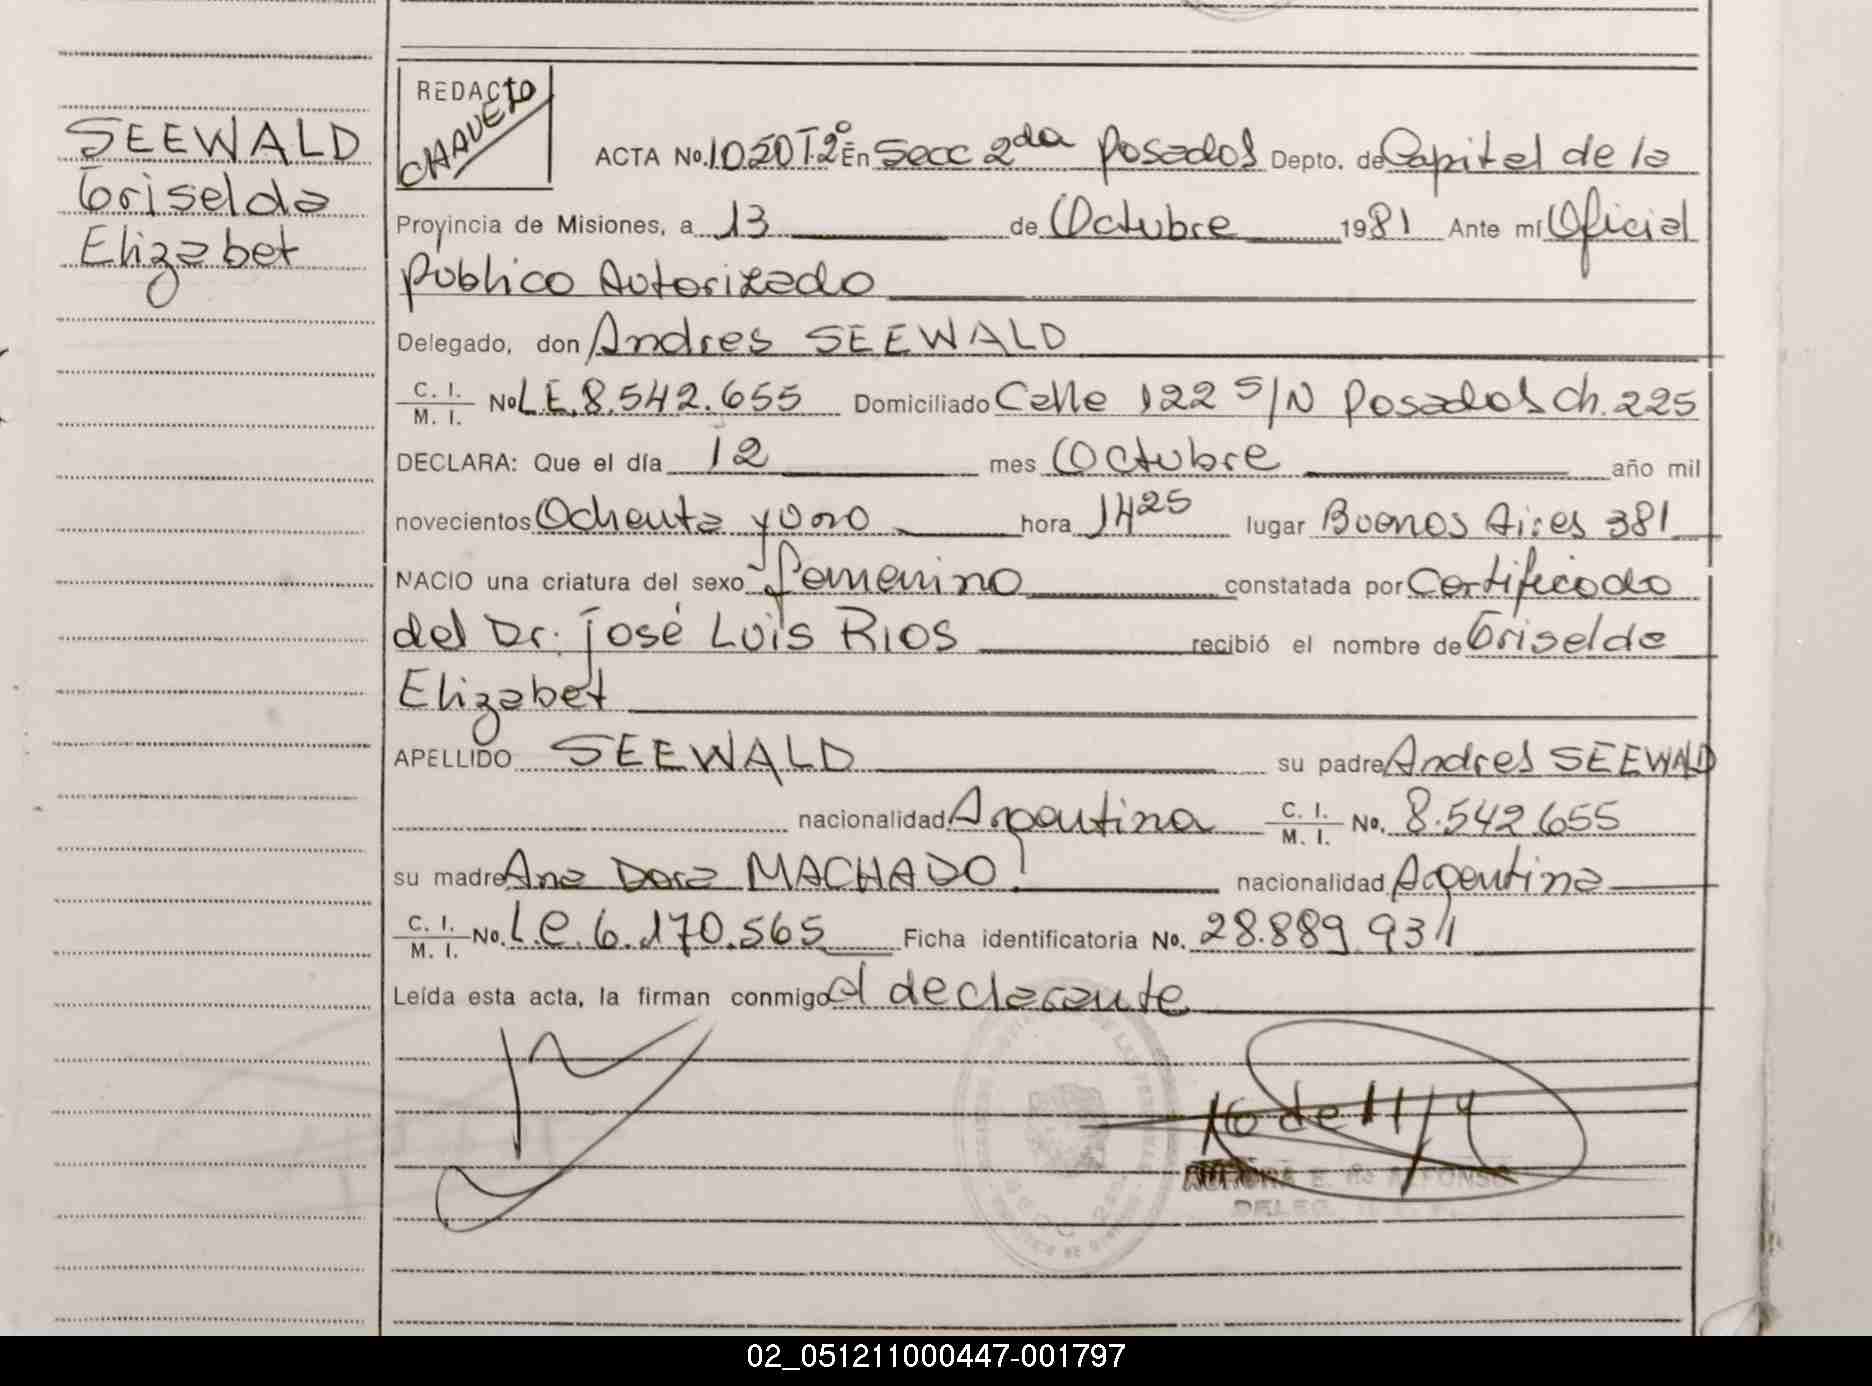 SEEWALD
Griselda
Elizabet
REDACTO
CHAVEZ
ACTA No. 1020 T.2º En Secc 2da Posadas Depto. de Capital de la
Provincia de Misiones, a 13 de Octubre 1981 Ante mí Oficial
Público Autorizado
Delegado, don Andres SEEWALD
C. I.
M. I. No L.E. 8.542.655 Domiciliado Calle 122 S/N Posadas Ch. 225
DECLARA: Que el día 12 mes Octubre año mil
novecientos Ochenta y Uno hora 14 25 lugar Buenos Aires 381
NACIO una criatura del sexo femenino constatada por Certificado
del Dr. José Luis RIOS recibió el nombre de Griselda
Elizabet
APELLIDO SEEWALD su padre Andres SEEWALD
nacionalidad Argentina C. I.
M. I. No. 8.542.655
su madre Ana Dora MACHADO nacionalidad Argentina
C. I.
M. I. No. L.C. 6.170.565 Ficha identificatoria No. 28.889.931
Leída esta acta, la firman conmigo el declarante
E. de ALFONSO
DELEG.
02_051211000447-001797